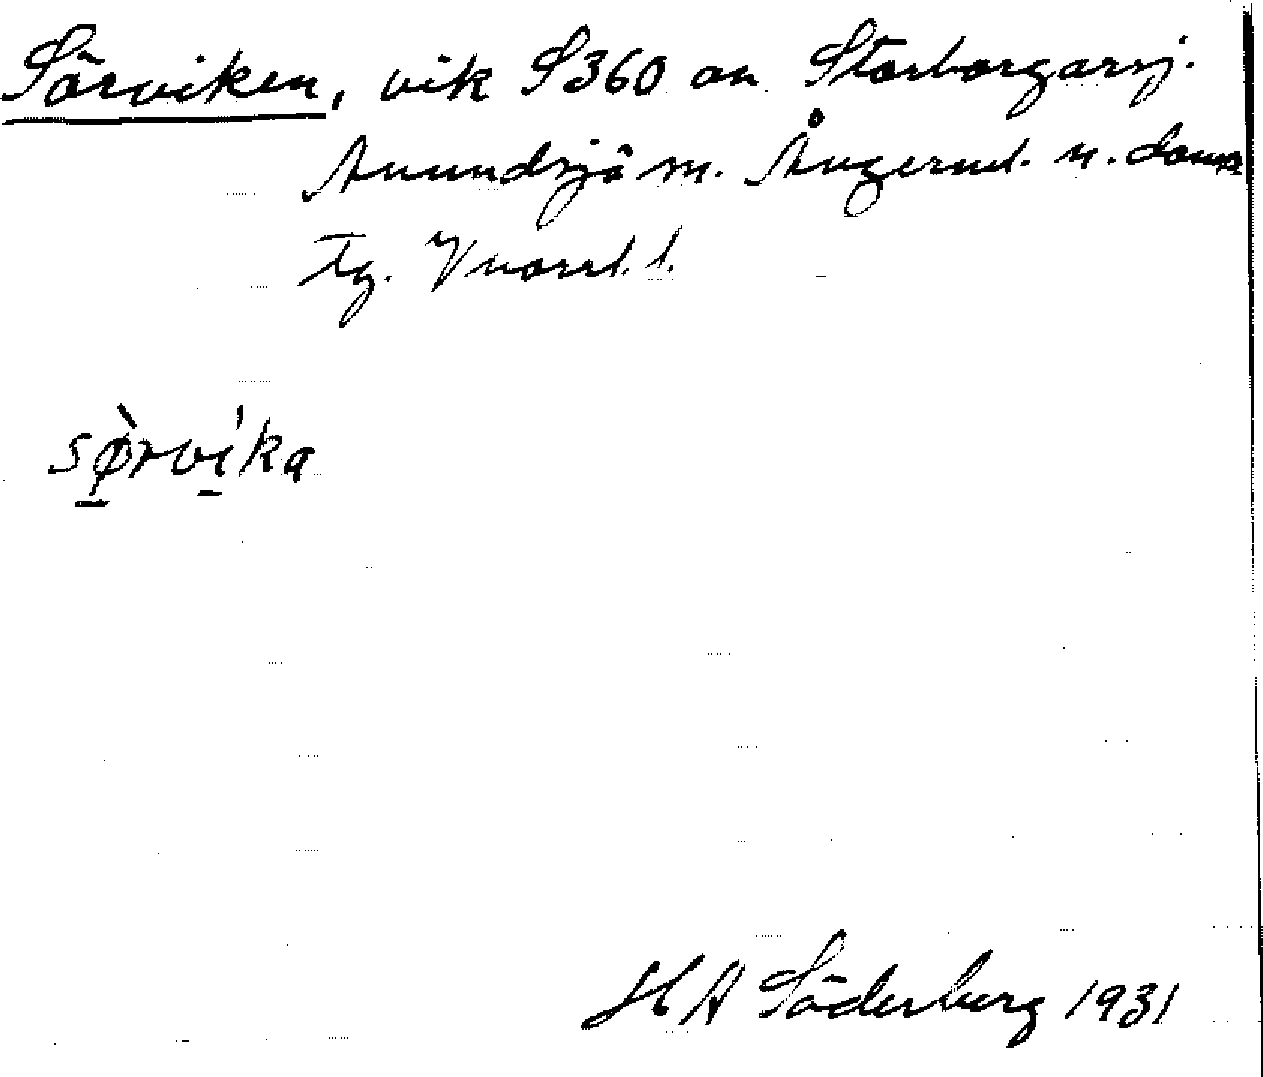 Sörviken, vik S360 an Storborgarsj.
Anundsjö sn. Ångerml. n. doms
Tg. Vnorrl. l.
sø̀rvíka
H A Söderberg 1931